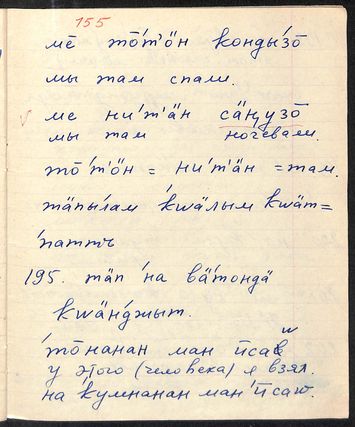 155
ме̄ тō′т'ӧн конды́зō
мы там спали.
ме ни′т'ӓн сӓӊузō
мы там ночевали.
тō′т'ӧн = ни′т'ӓн = там.
тӓпы́лам ќwӓлым kwӓт=
′паттъ
195. тӓп ′на вӓ′тондӓ
kwӓнџыт.
′тōнанан ман п̄сав w
у этого (человека) я взял.
на ќумнанан ман ′п̄саw.